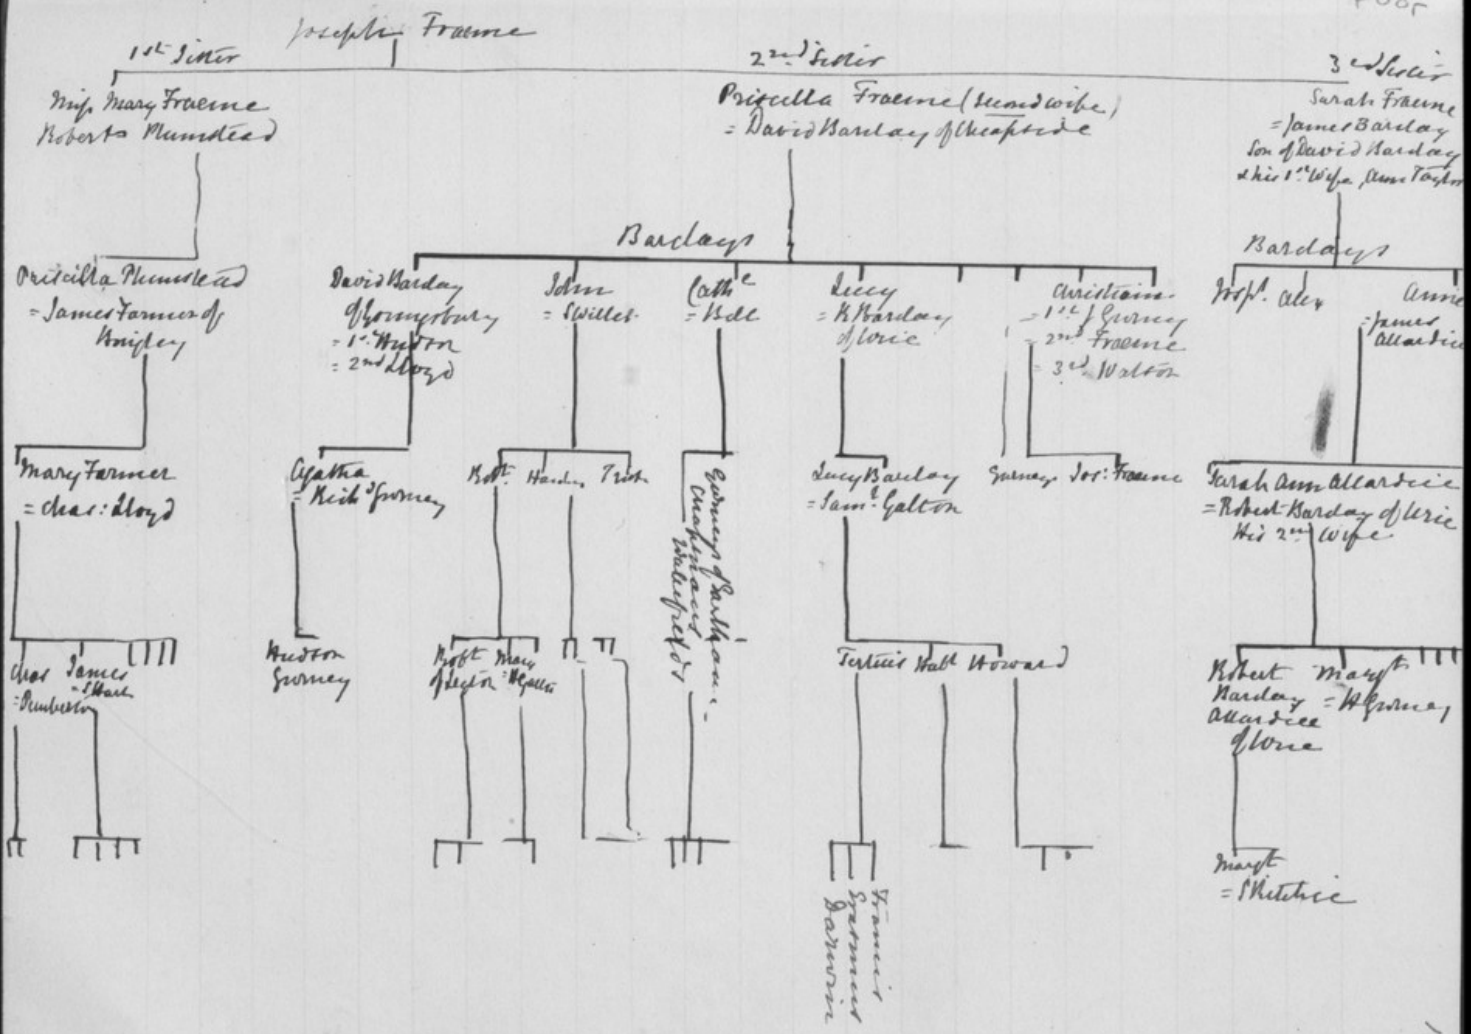 Joseph Fraeme
1st Sister
2nd Sister
3rd Sister
Miss Mary Fraeme
Roberts Plumstead
Priscilla Fraeme (second wife)
= David Barclay of Cheapside
Sarah Fraeme
= James Barclay
Son of David Barclay
& his 1st Wife, Ann Taylor
Barclays
Barclays
Priscilla Plumstead
= James Farmer of
Bingley
David Barclay
of Youngsbury
= 1st Hudson
= 2nd Lloyd
John
= S Willet
Cathe
= Bell
Lucy
= R Barclay
of Urie
Christiana
= 1st J Gurney
= 2nd Fraeme
= 3rd Watson
Josp.
Alex
Anne
= James
Allardice
Mary Farmer
= Chas: Lloyd
Agatha
= Richd Gurney
Robt.
Gurneys of Earlham
Chapmans
Wakefields
Lucy Barclay
= Saml. Galton
Gurneys
Jos: Fraeme
Sarah Ann Allardice
= Robert Barclay of Urie
His 2nd Wife
Chas
= Pemberton
James
= S Hart
Hudson
Gurney
Robt
of Leyton
Mary
= H Galton
Tertius
Hub
Howard
Robert
Barclay
Allardice
of Urie
Margt
= H Gurney
Francis
Erasmus
Darwin
Margt
= S Ritchie